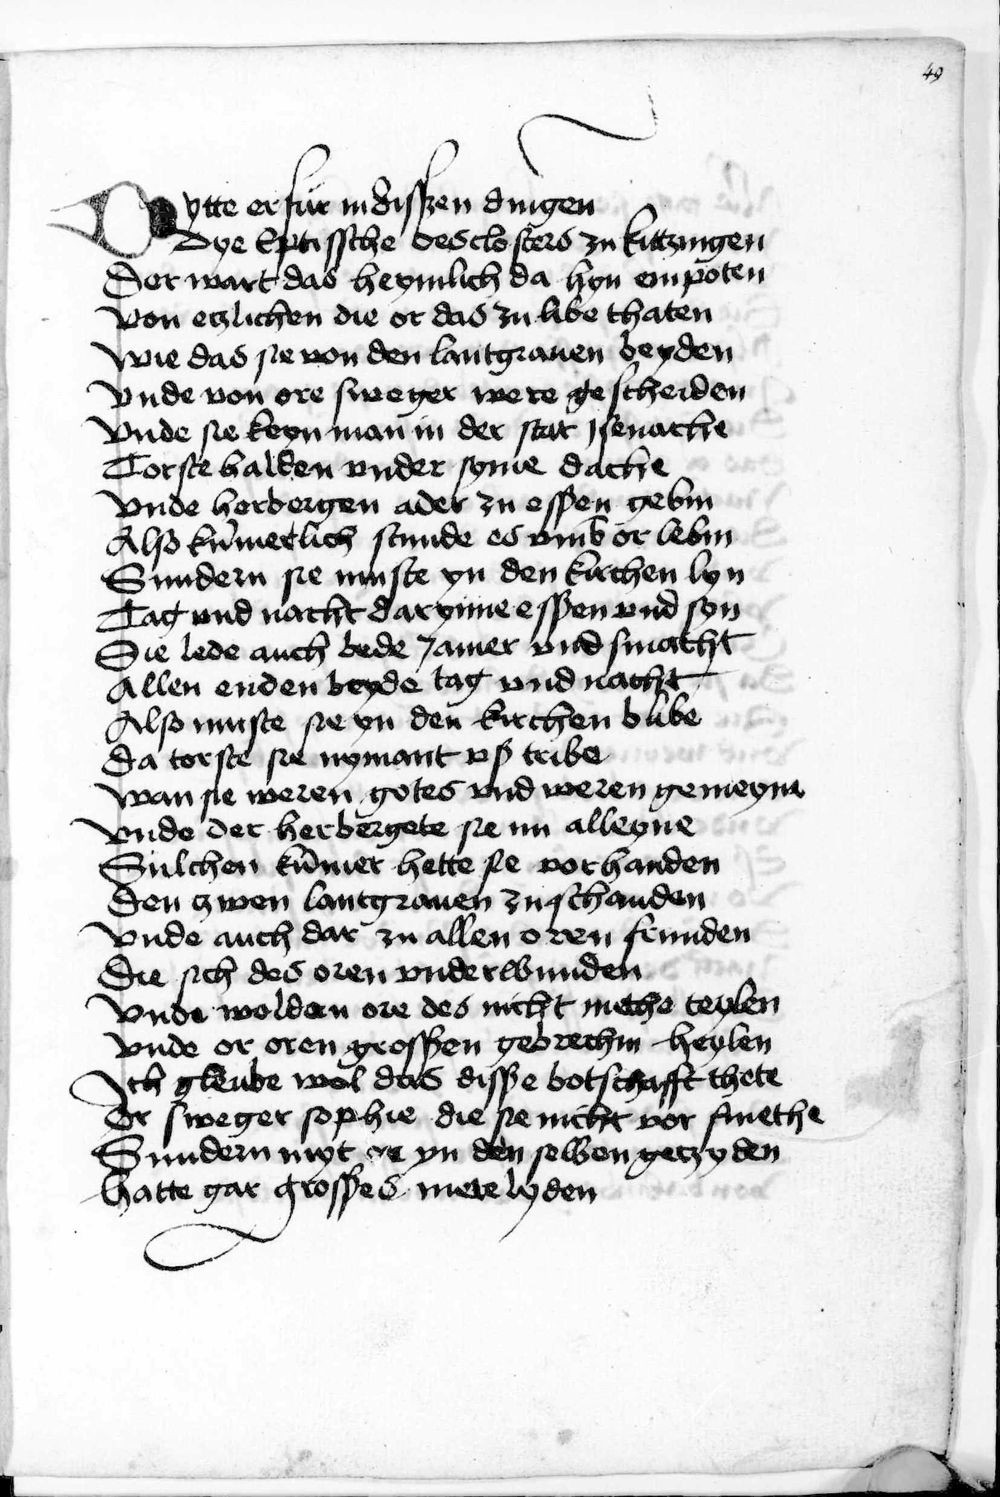 49
Dytte erfur in disszen dingen
Dye Eptissche des closters zu kittzingen
Der wart das heymlich da hyn empoten
Von etzlichen die or das zu libe thaten
Wie das sie von den lantgrauen beyden
Vnde von ore sweger were gescheiden
Vnde sie keyn man in der stat ysenache
Torste halden vnder syme dache
Vnde herbergen ader zu essen gebin
Also kůmerlich stunde es vmb or lebin
Sundern sie muste yn den kirchen lyn
Tag vnd nacht darynne essen vnd syn
Sie lede auch bede Jamer vnd smacht
Allen enden beyde tag vnd nacht
Also muste sie yn den kirchen blibe
da torste sie nymant vß tribe
Wan sie weren gotes vnd weren gemeyne
Vnde der herbergete sie nu alleyne
Sulchen kůmer hette sie vorhanden
Den zwen lantgrauen zu schanden
Vnde auch dar zu allen oren frunden
Die sich des oren vnderwunden
Vnde wolden ore des nicht methe teylen
Vnde or oren grossen gebrechin heylen
Ich gleube wol das disse botschafft thete
Or sweger sophie die sie nicht vor smethe
Sundern myt ore yn den selben getzyden
Hatte gar grosses mete lyden